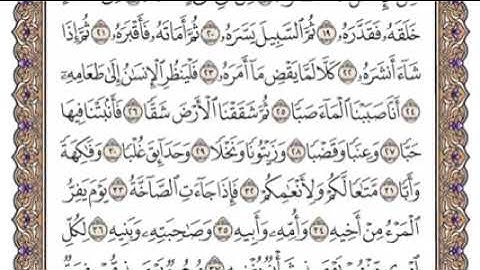 خَلَقَهُۥ فَقَدَّرَهُۥ ١٩ ثُمَّ ٱلسَّبِيلَ يَسَّرَهُۥ ٢٠ ثُمَّ أَمَاتَهُۥ فَأَقۡبَرَهُۥ ٢١ ثُمَّ إِذَا
شَآءَ أَنشَرَهُۥ ٢٢ كَلَّا لَمَّا يَقۡضِ مَآ أَمَرَهُۥ ٢٣ فَلۡيَنظُرِ ٱلۡإِنسَٰنُ إِلَىٰ طَعَامِهِۦٓ
٢٤ أَنَّا صَبَبۡنَا ٱلۡمَآءَ صَبًّا ٢٥ ثُمَّ شَقَقۡنَا ٱلۡأَرۡضَ شَقًّا ٢٦ فَأَنۢبَتۡنَا فِيهَا
حَبًّا ٢٧ وَعِنَبًا وَقَضۡبًا ٢٨ وَزَيۡتُونًا وَنَخۡلًا ٢٩ وَحَدَآئِقَ غُلۡبًا ٣٠ وَفَٰكِهَةً
وَأَبًّا ٣١ مَّتَٰعًا لَّكُمۡ وَلِأَنۡعَٰمِكُمۡ ٣٢ فَإِذَا جَآءَتِ ٱلصَّآخَّةُ ٣٣ يَوۡمَ يَفِرُّ
ٱلۡمَرۡءُ مِنۡ أَخِيهِ ٣٤ وَأُمِّهِۦ وَأَبِيهِ ٣٥ وَصَٰحِبَتِهِۦ وَبَنِيهِ ٣٦ لِكُلِّ